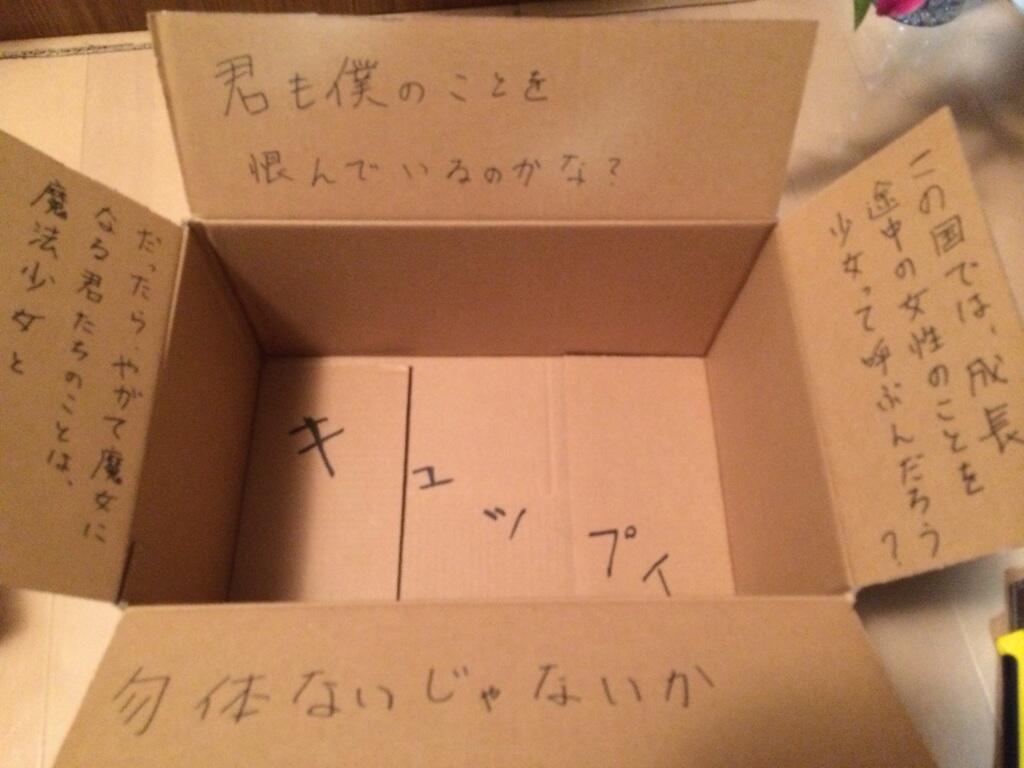 君も僕のことを
恨んでいるのかな？
この国では、成長
途中の女性のことを
少女って呼ぶんだろう？
だったら、やがて魔女に
なる君たちのことは、
魔法少女と
キュップイ
勿体ないじゃないか